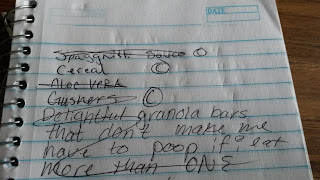 DATE
Spagghitti Sauce C
Cereal C
Aloe VERA
Gushers C
Delightful granola bars
that don't make me
have to poop if eat
more than ONE